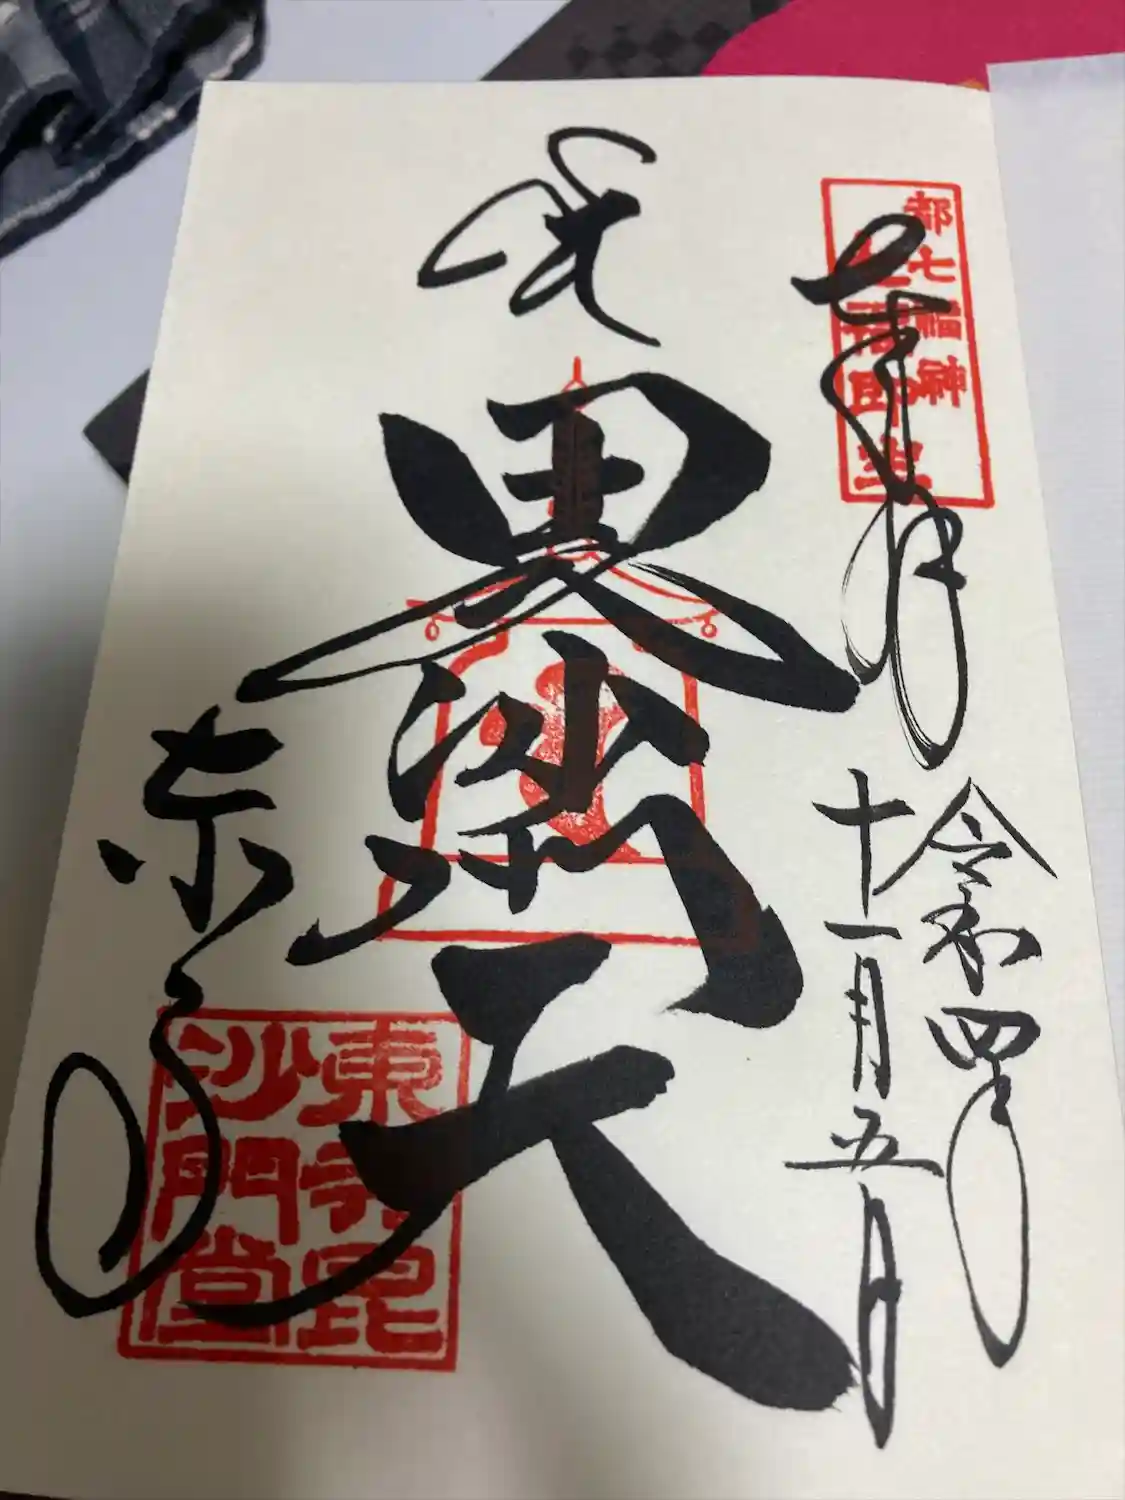 都七福神
奉拝
令和四年
十一月五日
毘沙門天
東寺
東寺毘
沙門堂